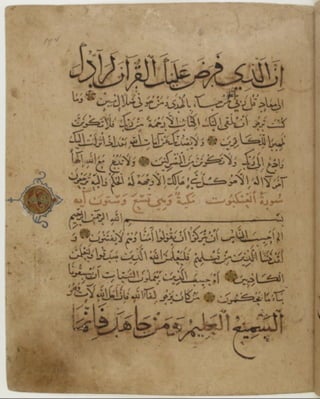 ان الذي فرض عليك القرآن لرادك
الى معاد قل ربي اعلم من جاء بالهدى ومن هو في ضلال مبين وما
كنت ترجو ان يلقى اليك الكتاب الا رحمة من ربك فلا تكونن
ظهيرا للكافرين ولا يصدنك عن آيات الله بعد اذ انزلت اليك
وادع الى ربك ولا تكونن من المشركين ولا تدع مع الله الها
آخر لا اله الا هو كل شيء هالك الا وجهه له الحكم واليه ترجعون
سورة العنكبوت مكية وهي تسع وستون آية
بسم الله الرحمن الرحيم
الم احسب الناس ان يتركوا ان يقولوا آمنا وهم لا يفتنون و
لقد فتنا الذين من قبلهم فليعلمن الله الذين صدقوا وليعلمن
الكاذبين ام حسب الذين يعملون السيئات ان يسبقونا
ساء ما يحكمون من كان يرجو لقاء الله فان اجل الله لآت وهو
السميع العليم ومن جاهد فانما